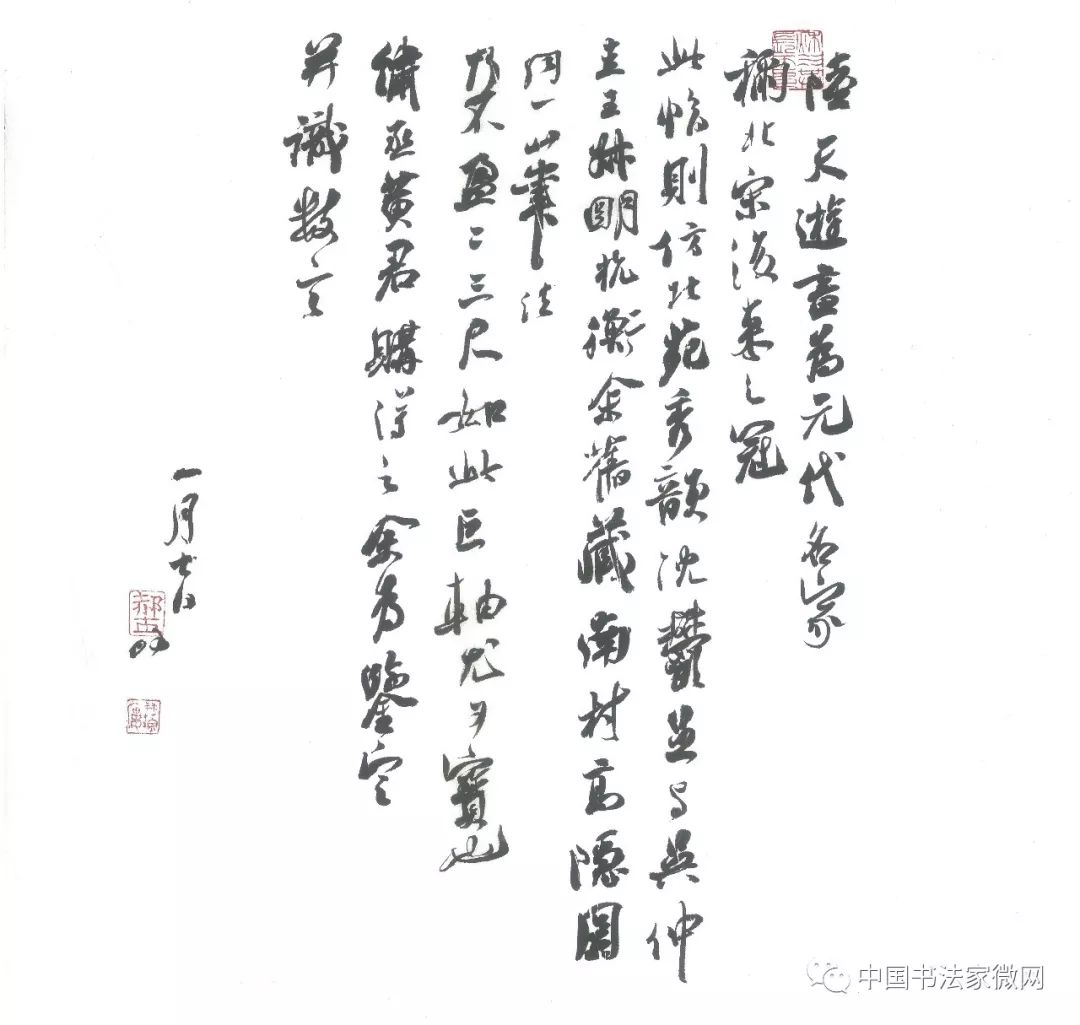 陸天遊畫為元代名家
祧北宋後來之冠
此幀則仿北苑秀韻沈鬱並與吳仲
圭王叔明抗衡余舊藏南村高隱圖
同一山筆法
不盈二三尺如此巨軸尤可寶也
丞黃君購得之余為鑒定
并識數言
一月七日
中国书法家微网